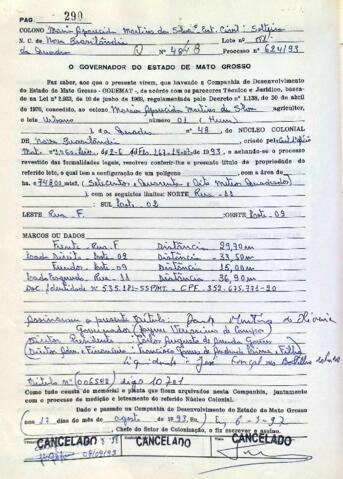 PAG 290
COLONO Maria Aparecida Martins da Silva Est. Civil Solteira
N. C. de Nova Brasilândia Lote nº 01
da Quadra Nº 48 Processo nº 624/93
O GOVERNADOR DO ESTADO DE MATO GROSSO
Faz saber, aos que a presente virem, que havendo a Companhia de Desenvolvimento
do Estado de Mato Grosso - CODEMAT -, de acordo com os pareceres Técnico e Jurídico, basea-
do na Lei de 10 de junho de regulamentada pelo Decreto n.º 1.138, de 30 de abril
de 1970, concedido, ao colono Maria Aparecida Martins da Silva agricultor,
o lote Urbano número 01 (Hum)
da Quadra nº 48, do NÚCLEO COLONIAL
de Nova Brasilândia, criado pela
1993, e achando-se o processo
revestido das formalidades legais, resolveu conferir-lhe o presente título de propriedade do
referido lote, o qual tem a configuração de um polígono com a área de
748,00 (Setecentos e Quarenta e Oito Metros Quadrados)
com os seguintes limites: NORTE Rua - 11
SUL Lote - 02
LESTE Rua - F OESTE Lote - 09
MARCOS OU DADOS
Frente - Rua - F Distância - 29,70 m
Lado Direito - Lote - 02 Distância - 33,50 m
Fundos - Lote - 09 Distância - 15,00 m
Lado Esquerdo - Rua - 11 Distância - 36,90 m
Doc. Identidade nº 535.181-SSPMT - CPF. 352.675.771-20
Assinaram o presente título:
Governador (Jayme Veríssimo de Campos)
Diretor Presidente
Diretor Adm. e Financeiro Francisco Gomes de Andrade Lima Filho
Liquidante: José Gonçalves Botelho
Título nº (006598) digo 10701
Tudo consta do memorial e planta que ficam arquivados nesta Companhia, juntamente
com o processo de medição e loteamento do referido Núcleo Colonial.
Dado e passado na Companhia de Desenvolvimento do Estado de Mato Grosso
aos 12 dias do mês de agosto de 1993
Chefe do Setor de Colonização, o fiz escrever e assino.
CANCELADO CANCELADO CANCELADO
08/09/93